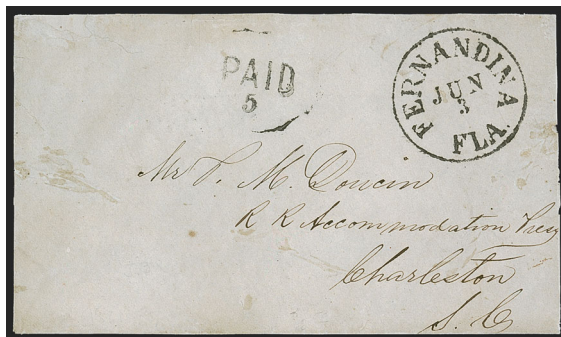 PAID
5
FERNANDINA
JUN
3
FLA.
Mr P. M. Doucin
R R Accommodation
Charleston
S. C